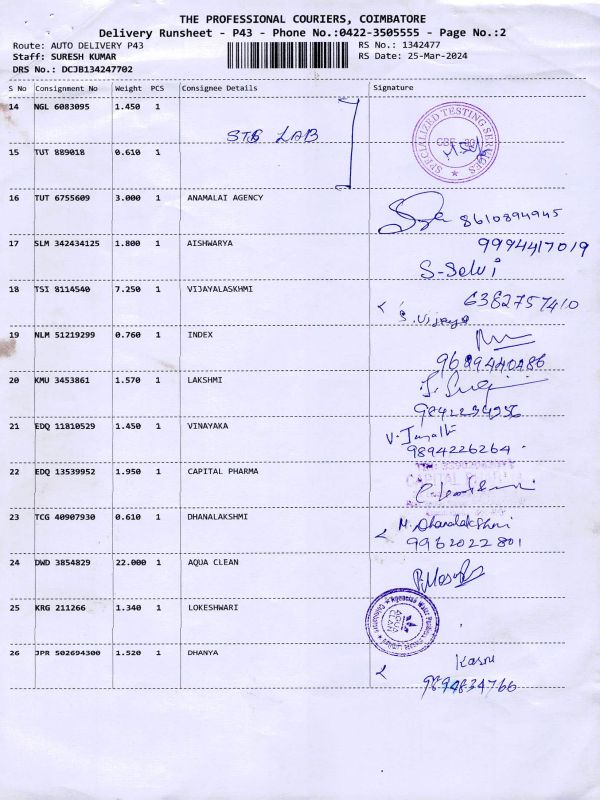 THE PROFESSIONAL COURIERS, COIMBATORE
Delivery Runsheet - P43 - Phone No.:0422-3505555 - Page No.:2
Route: AUTO DELIVERY P43 RS No.: 1342477
Staff: SURESH KUMAR RS Date: 25-Mar-2024
DRS No.: DCJB134247702
S No Consignment No Weight PCS Consignee Details Signature
14 NGL 6083095 1.450 1
STG LAB
SPECIALIZED TESTING SERVICES
15 TUT 889018 0.610 1
16 TUT 6755609 3.000 1 ANAMALAI AGENCY
8610894945
17 SLM 342434125 1.800 1 AISHWARYA 9994417019
S-Selvi
18 TSI 8114540 7.250 1 VIJAYALASKHMI 6382757410
S. Vijaya
19 NLM 51219299 0.760 1 INDEX
20 KMU 3453861 1.570 1 LAKSHMI
21 EDQ 11810529 1.450 1 VINAYAKA
9894226264
22 EDQ 13539952 1.950 1 CAPITAL PHARMA
23 TCG 40907930 0.610 1 DHANALAKSHMI M. Dhanalakshmi
9962022801
24 DWD 3854829 22.000 1 AQUA CLEAN
25 KRG 211266 1.340 1 LOKESHWARI
AQUA CLEAN
26 JPR 502694300 1.520 1 DHANYA
9894834766